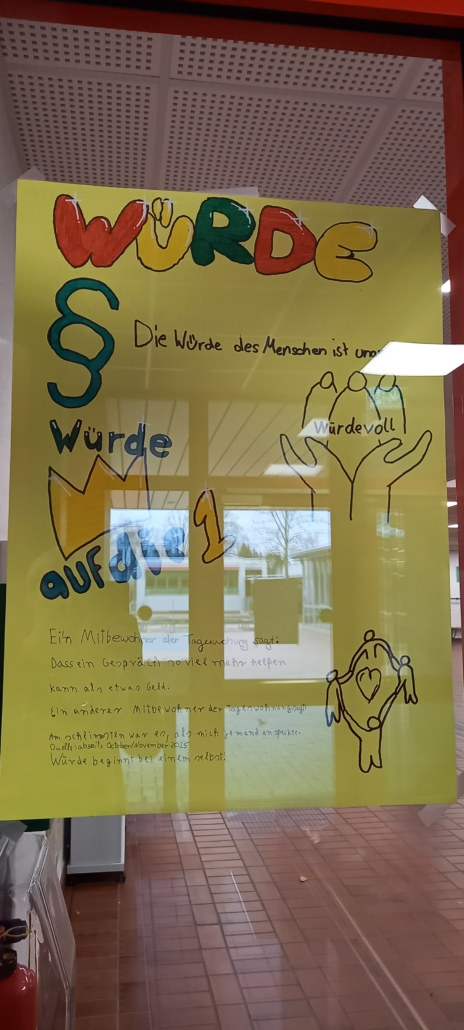 WÜRDE
§ Die Würde des Menschen ist
Würde
Würdevoll
auf die 1
Ein Mitbewohner der Tagewohung sagt:
Dass ein Gespräch so viel mehr helfen
kann als etwas Geld.
Ein anderer Mitbewohner der Tagenwohnung sagt:
Am schlimmsten war es, als mich jemand anspuckte.
Quelle: abseits October/November 2025
Würde beginnt bei einem selbst.